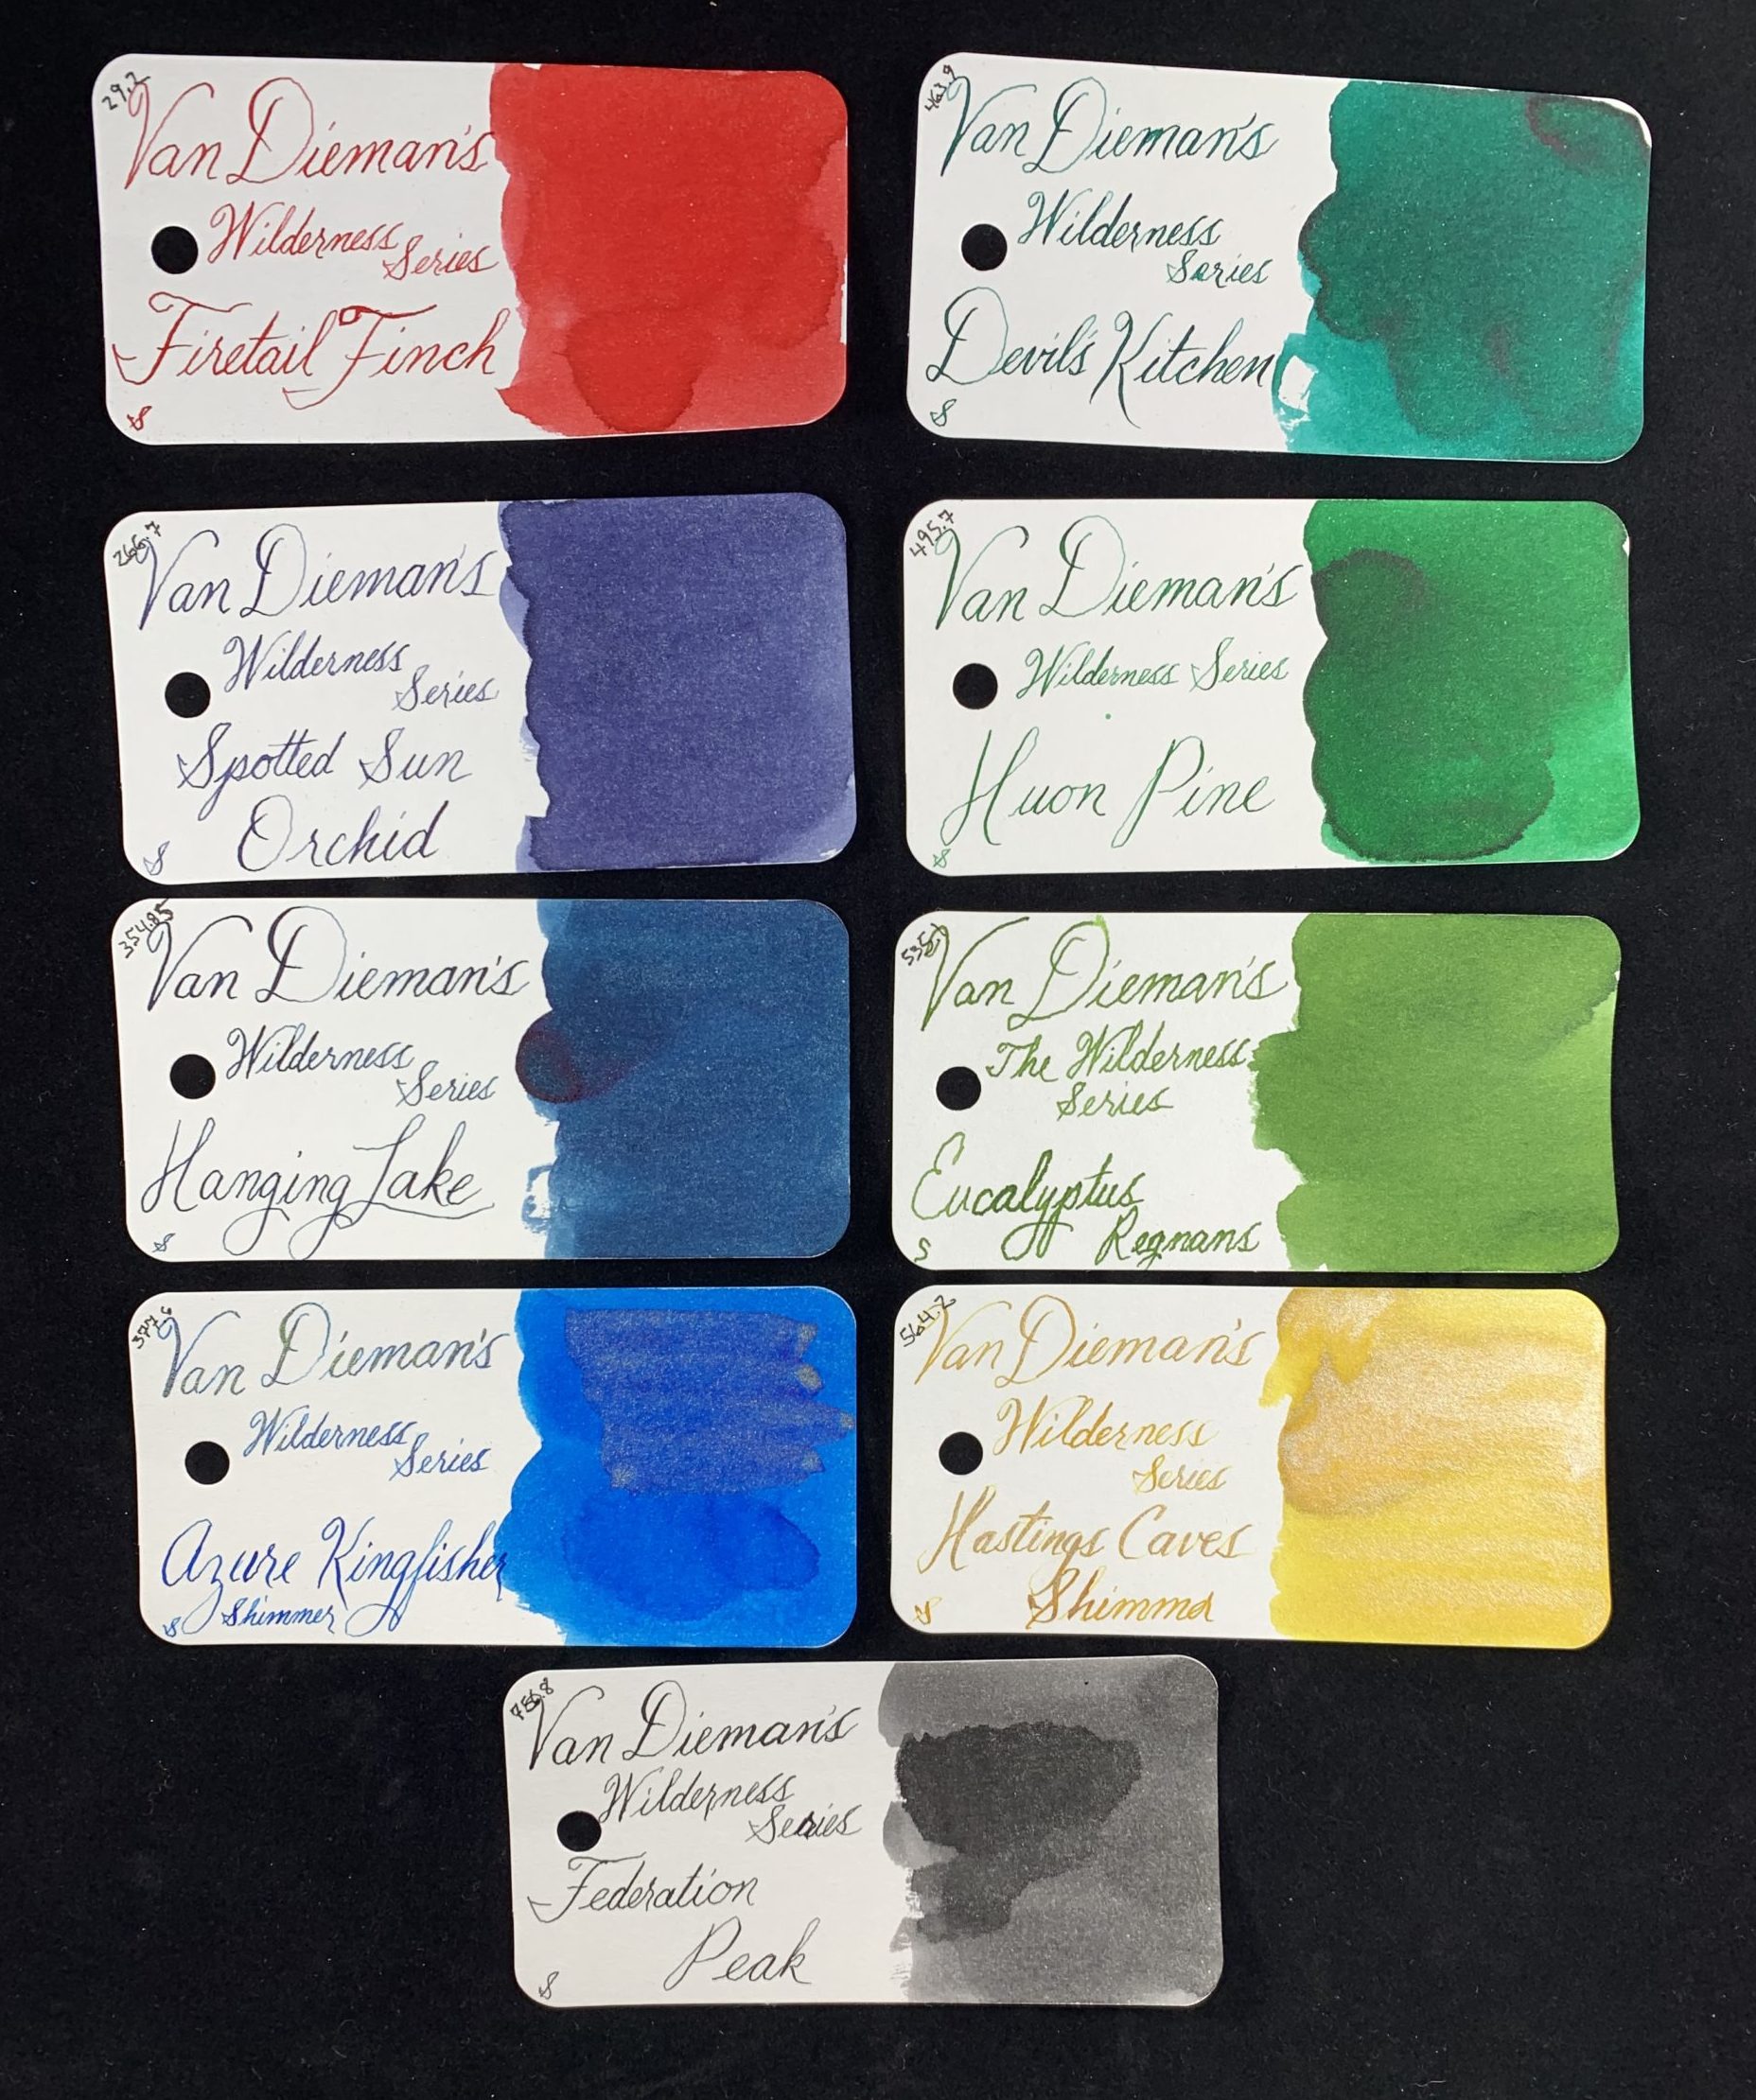 29.2
Van Dieman's
Wilderness
Series
Firetail Finch
S
463.9
Van Dieman's
Wilderness
Series
Devil's Kitchen
S
266.7
Van Dieman's
Wilderness
Series
Spotted Sun
Orchid
S
495.7
Van Dieman's
Wilderness Series
Huon Pine
S
354.85
Van Dieman's
Wilderness
Series
Hanging Lake
S
Van Dieman's
The Wilderness
Series
Eucalyptus
Regnans
S
Van Dieman's
Wilderness
Series
Azure Kingfisher
Shimmer
S
564.2
Van Dieman's
Wilderness
Series
Hastings Caves
Shimmer
S
Van Dieman's
Wilderness
Series
Federation
Peak
S